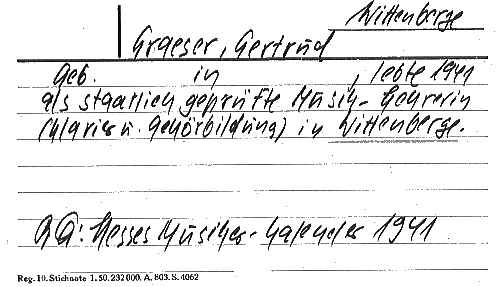 Wittenberge
Graeser, Gertrud
Geb. in , lebte 1941
als staatlich geprüfte Musik-Lehrerin
(Klavier u. Gehörbildung) in Wittenberge.
Hesses Musiker-Kalender 1941
Reg. 10. Stichnote 1. 50. 232 000. A. 803. S. 4062